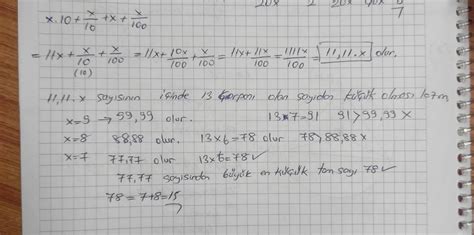 x.10 + x/10 + x + x/100
= 11x + x/10 + x/100 = 11x + 10x/100 + x/100 = 11x + 11x/100 = 1111x/100 = 11,11.x olur.
(10)
11,11.x sayısının içinde 13 çarpanı olan sayıdan küçük olması lazım
x=9 → 99,99 olur. 13x7=91 91>99,99 x
x=8 88,88 olur. 13x6=78 olur 78>88,88 x
x=7 77,77 olur 13x6=78 ✓
77,77 sayısından büyük en küçük tam sayı 78 ✓
78 = 7+8=15